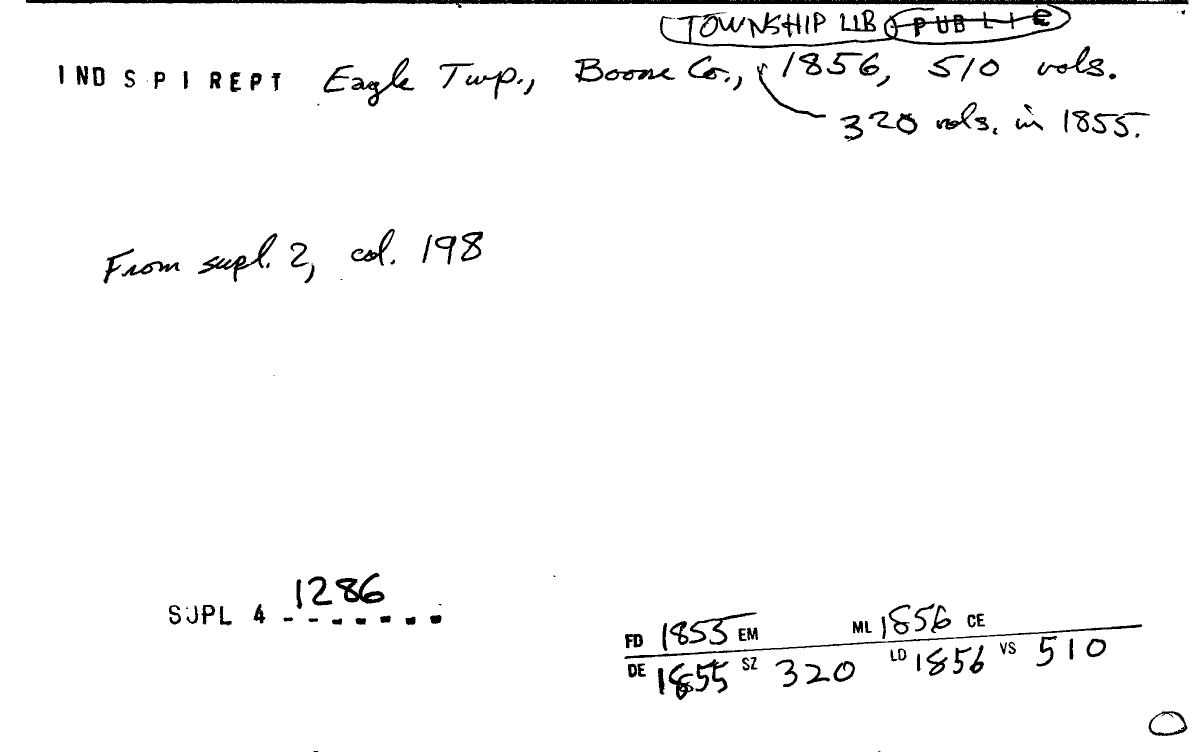 TOWNSHIP LIB PUBLIC
IND S P I REPT Eagle Twp., Boone Co., 1856, 510 vols.
320 vols. in 1855.
From supl. 2, col. 198
SUPL 4 1286
FD 1855 EM ML 1856 CE
DE 1855 SZ 320 LD 1856 VS 510